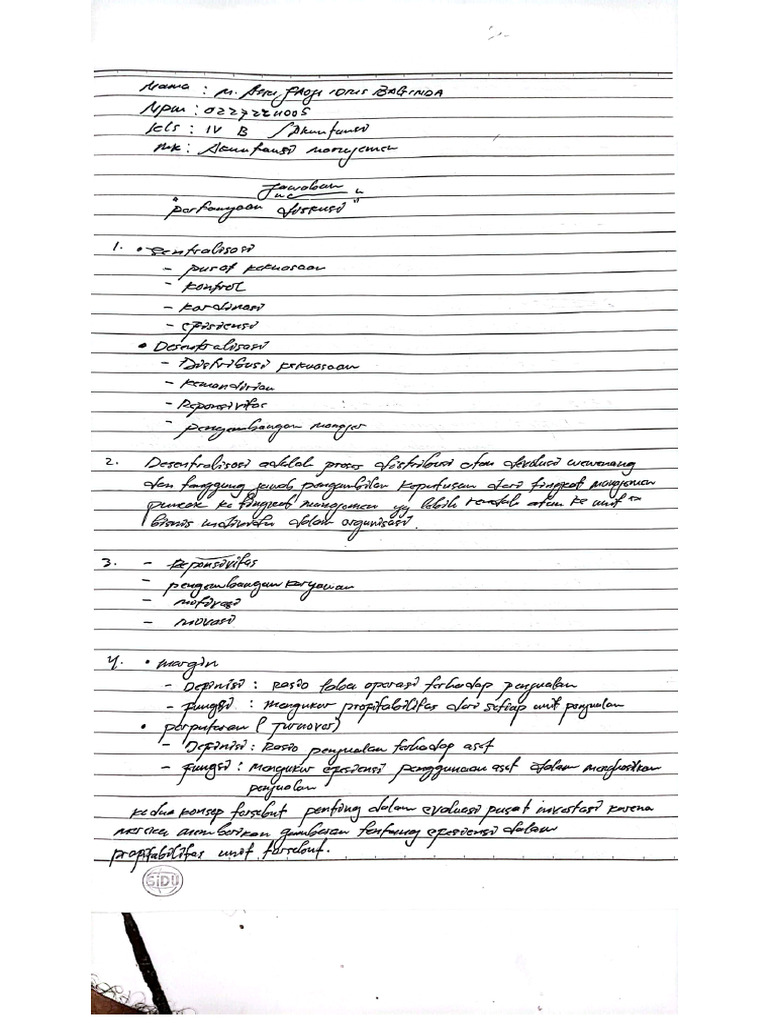 Nama : M. IDRIS BAGINDA
Npm :
Kls : IV B / Akuntansi
Mk : Akuntansi Manajemen
Jawaban
"pertanyaan diskusi"
1. • Sentralisasi
- pusat kekuasaan
- kontrol
- kordinasi
- efisiensi
• Desentralisasi
- Distribusi kekuasaan
- kemandirian
- Reponsivitas
- pengembangan manajer
2. Desentralisasi adalah proses distribusi atau devolusi wewenang
dan tanggung jawab pengambilan keputusan dari tingkat manajemen
puncak ke tingkat manajemen yg lebih rendah atau ke unit -
bisnis individu dalam organisasi.
3. - Reponsivitas
- pengembangan karyawan
- motivasi
- inovasi
4. • margin
- Definisi : Rasio laba operasi terhadap penjualan
- fungsi : mengukur profitabilitas dari setiap unit penjualan
• perputaran (Turnover)
- Definisi : Rasio penjualan terhadap aset
- fungsi : mengukur efesiensi penggunaan aset dalam menghasilkan
penjualan
kedua konsep tersebut penting dalam evaluasi pusat investasi karena
mereka memberikan gambaran tentang efesiensi dalam
profitabilitas unit tersebut.
SIDU